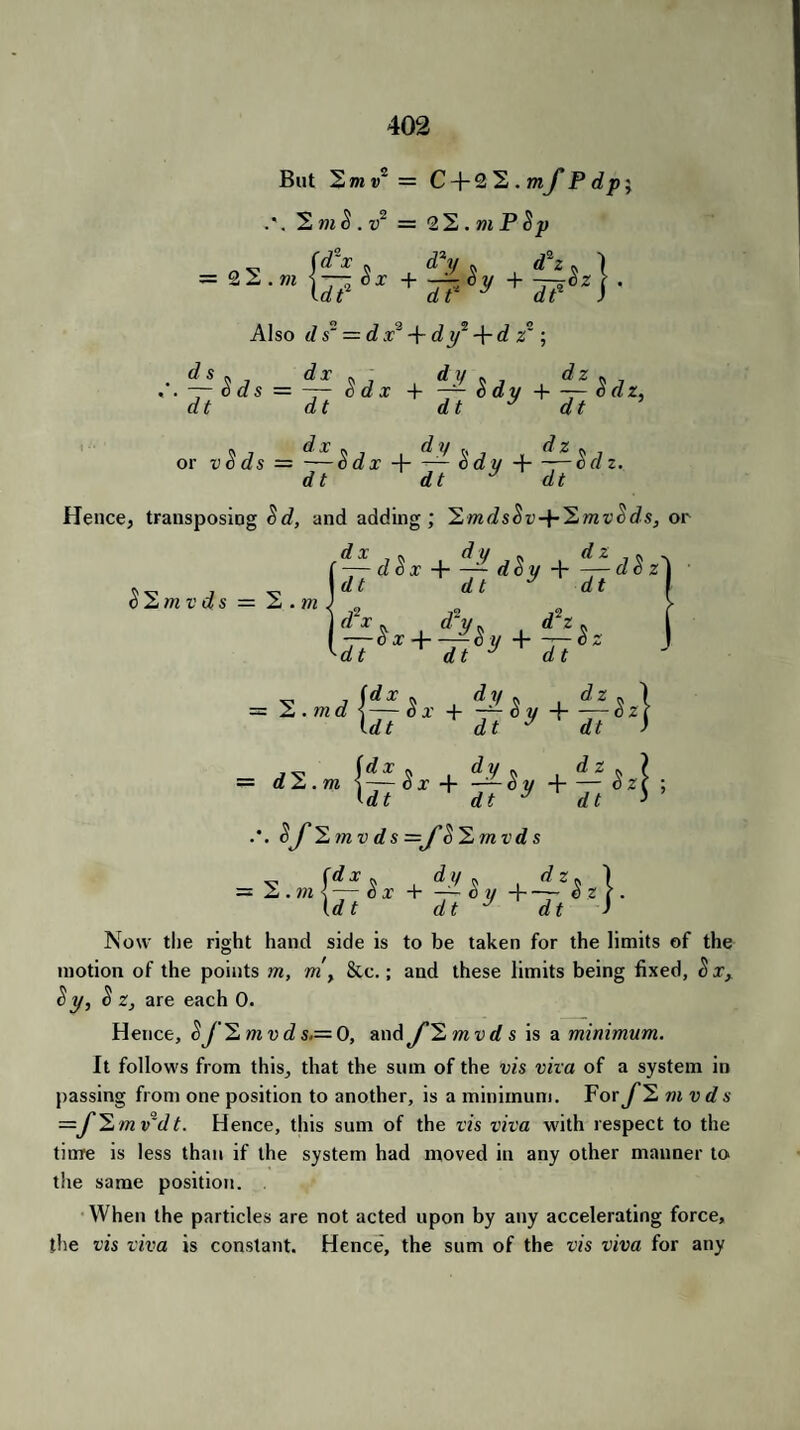 402
But Σmv² = C + 2Σ.m∫P dp;
∴ Σmδ.v² = 2Σ.mPδp
= 2Σ.m {d²x/dt² δx + d²y/dt² δy + d²z/dt² δz}.
Also ds² = dx² + dy² + dz²;
∴ ds/dt δds = dx/dt δdx + dy/dt δdy + dz/dt δdz,
or vδds = dx/dt δdx + dy/dt δdy + dz/dt δdz.
Hence, transposing δd, and adding; ΣmdsδV+Σmvδds, or
δΣmvds = Σ.m {dx/dt dδx + dy/dt dδy + dz/dt dδz
d²x/dt δx + d²y/dt δy + d²z/dt δz}
= Σ.md {dx/dt δx + dy/dt δy + dz/dt δz}
= dΣ.m {dx/dt δx + dy/dt δy + dz/dt δz};
∴ δ∫Σmvds = ∫δΣmvds
= Σ.m {dx/dt δx + dy/dt δy + dz/dt δz}.
Now the right hand side is to be taken for the limits of the
motion of the points m, m', &c.; and these limits being fixed, δx,
δy, δz, are each 0.
Hence, δ∫Σmvds.=0, and ∫Σmvds is a minimum.
It follows from this, that the sum of the vis viva of a system in
passing from one position to another, is a minimum. For ∫Σmvds
=∫Σmv²dt. Hence, this sum of the vis viva with respect to the
time is less than if the system had moved in any other manner to
the same position.
When the particles are not acted upon by any accelerating force,
the vis viva is constant. Hence, the sum of the vis viva for any